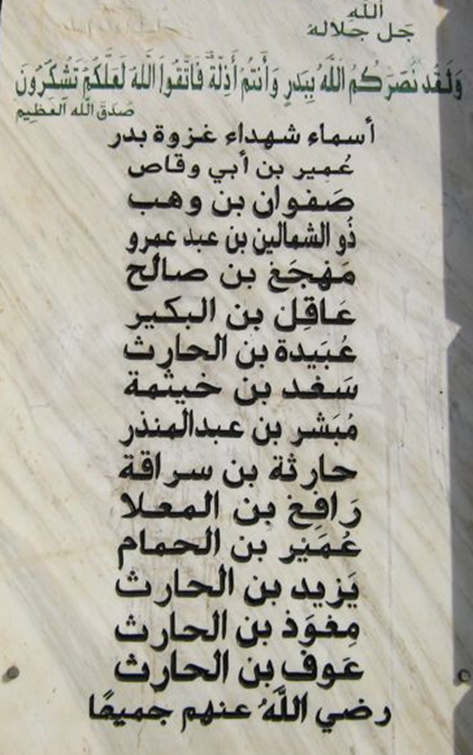 الله
جل جلاله
وَلَقَد نَصَرَكُمُ اللَّهُ بِبَدرٍ وَأَنتُم أَذِلَّةٌ فَاتَّقُوا اللَّهَ لَعَلَّكُم تَشكُرُونَ
صدق الله العظيم
أسماء شهداء غزوة بدر
عُمير بن أبي وقاص
صَفوان بن وهب
ذُو الشمالين بن عبد عمرو
مَهْجَعْ بن صالح
عَاقِل بن البكير
عُبَيدة بن الحارث
سَعْد بن خيثمة
مُبَشر بن عبدالمنذر
حارثة بن سراقة
رَافِعْ بن المعلا
عُمَيْر بن الحمام
يَزيد بن الحارث
مِعْوَذ بن الحارث
عَوف بن الحارث
رضي اللَّهُ عنهم جميعًا